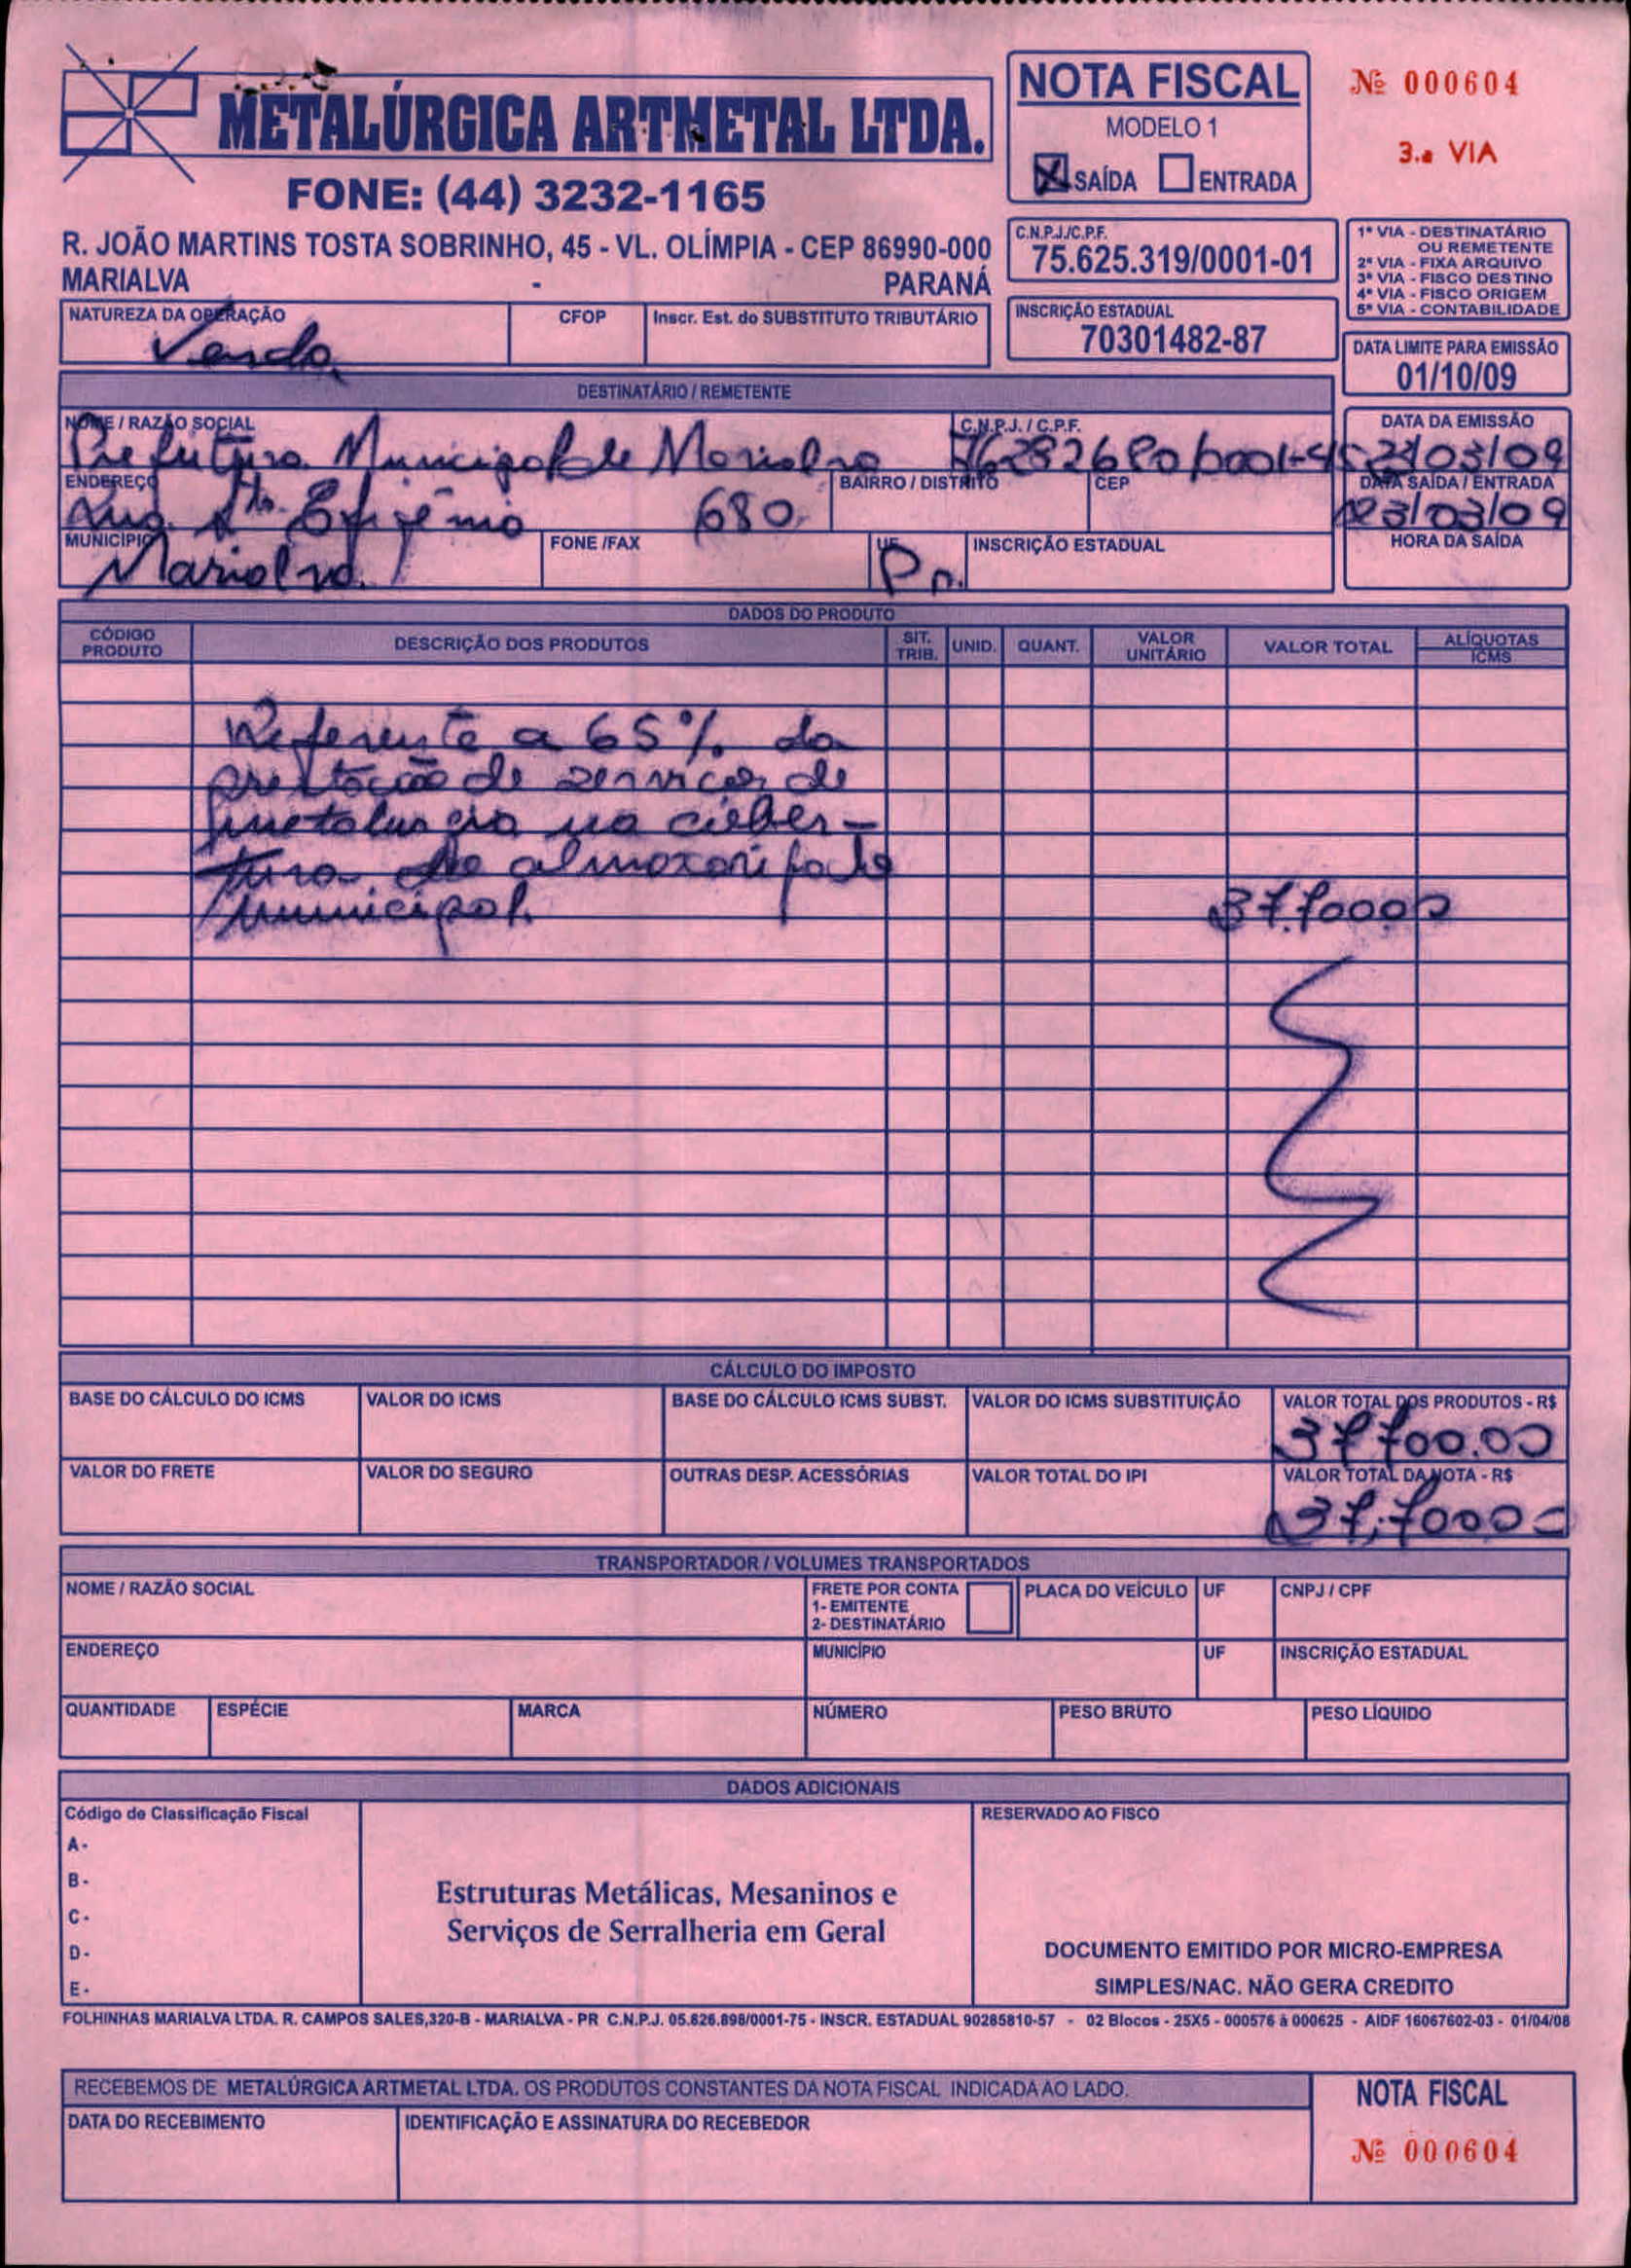 METALÚRGICA ARTMETAL LTDA.
FONE: (44) 3232-1165
R. JOÃO MARTINS TOSTA SOBRINHO, 45 - VL. OLÍMPIA - CEP 86990-000
MARIALVA - PARANÁ
NOTA FISCAL
MODELO 1
X SAÍDA ENTRADA
Nº 000604
3.a VIA
C.N.P.J./C.P.F.
75.625.319/0001-01
INSCRIÇÃO ESTADUAL
70301482-87
1ª VIA - DESTINATÁRIO
OU REMETENTE
2ª VIA - FIXA ARQUIVO
3ª VIA - FISCO DESTINO
4ª VIA - FISCO ORIGEM
5ª VIA - CONTABILIDADE
DATA LIMITE PARA EMISSÃO
01/10/09
NATUREZA DA OPERAÇÃO CFOP Inscr. Est. do SUBSTITUTO TRIBUTÁRIO
Venda
DESTINATÁRIO / REMETENTE
NOME / RAZÃO SOCIAL C.N.P.J. / C.P.F. DATA DA EMISSÃO
Prefeitura Municipal de Marialva 76282680/0001-45 23/03/09
ENDEREÇO BAIRRO / DISTRITO CEP DATA SAÍDA / ENTRADA
Sta. Efigênia 680 23/03/09
MUNICÍPIO FONE /FAX UF INSCRIÇÃO ESTADUAL HORA DA SAÍDA
Marialva. Pr.
DADOS DO PRODUTO
CÓDIGO PRODUTO DESCRIÇÃO DOS PRODUTOS SIT. TRIB. UNID. QUANT. VALOR UNITÁRIO VALOR TOTAL ALÍQUOTAS ICMS
Referente a 65% da
prestação de serviços de
metalurgia na cober-
tura do almoxarifado
Municipal. 37.70000
CÁLCULO DO IMPOSTO
BASE DO CÁLCULO DO ICMS VALOR DO ICMS BASE DO CÁLCULO ICMS SUBST. VALOR DO ICMS SUBSTITUIÇÃO VALOR TOTAL DOS PRODUTOS - R$
37700.00
VALOR DO FRETE VALOR DO SEGURO OUTRAS DESP. ACESSÓRIAS VALOR TOTAL DO IPI VALOR TOTAL DA NOTA - R$
37.70000
TRANSPORTADOR / VOLUMES TRANSPORTADOS
NOME / RAZÃO SOCIAL FRETE POR CONTA PLACA DO VEÍCULO UF CNPJ / CPF
1- EMITENTE
2- DESTINATÁRIO
ENDEREÇO MUNICÍPIO UF INSCRIÇÃO ESTADUAL
QUANTIDADE ESPÉCIE MARCA NÚMERO PESO BRUTO PESO LÍQUIDO
DADOS ADICIONAIS
Código de Classificação Fiscal RESERVADO AO FISCO
A-
B-
C-
D-
E-
Estruturas Metálicas, Mesaninos e
Serviços de Serralheria em Geral
DOCUMENTO EMITIDO POR MICRO-EMPRESA
SIMPLES/NAC. NÃO GERA CREDITO
FOLHINHAS MARIALVA LTDA. R. CAMPOS SALES,320-B - MARIALVA - PR C.N.P.J. 05.626.898/0001-75 - INSCR. ESTADUAL 90285810-57 - 02 Blocos - 25X5 - 000576 à 000625 - AIDF 16067602-03 - 01/04/08
RECEBEMOS DE METALÚRGICA ARTMETAL LTDA. OS PRODUTOS CONSTANTES DA NOTA FISCAL INDICADA AO LADO.
DATA DO RECEBIMENTO IDENTIFICAÇÃO E ASSINATURA DO RECEBEDOR
NOTA FISCAL
Nº 000604